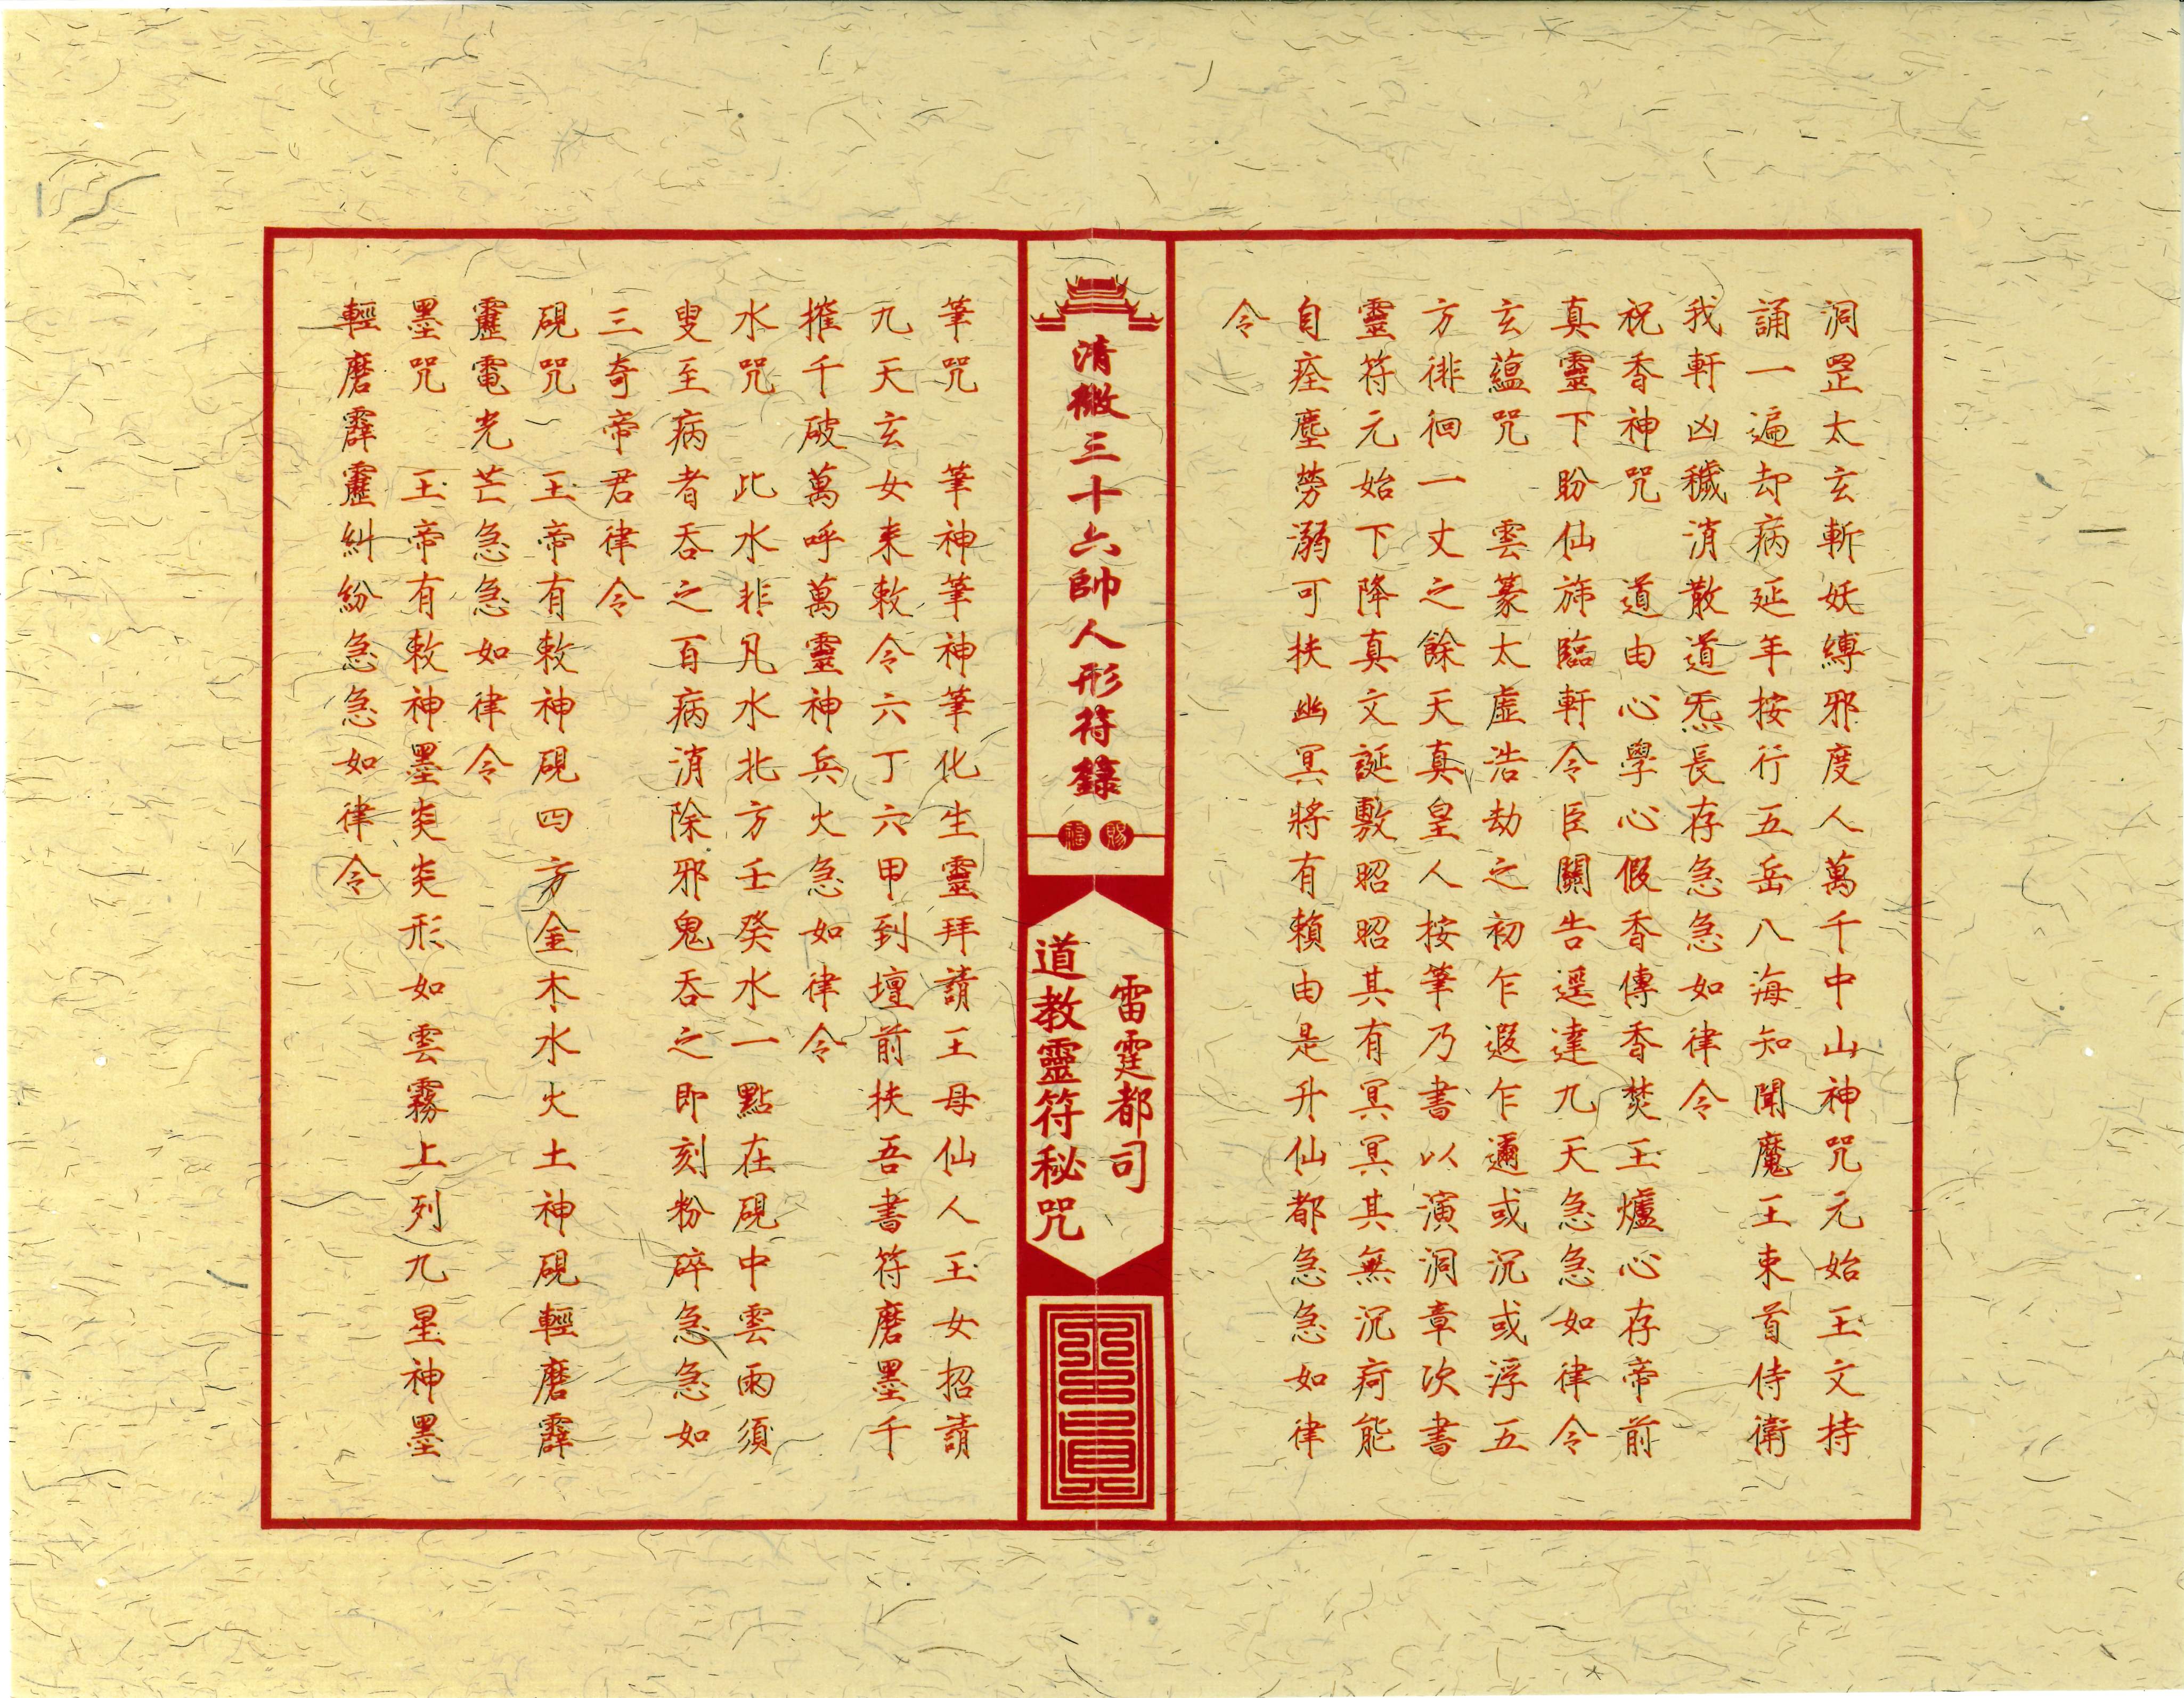 洞罡太玄斬妖縛邪度人萬千中山神咒元始王文持
誦一遍却病延年按行五岳八海知聞魔王束首侍衛
我軒凶穢消散道炁長存急急如律令
祝香神咒　道由心學心假香傳香焚玉爐心存帝前
真靈下盼仙旆臨軒令臣關告逕達九天急急如律令
玄蘊咒　雲篆太虛浩劫之初乍遐乍邇或沉或浮五
方徘徊一丈之餘天真皇人按筆乃書以演洞章次書
靈符元始下降真文誕敷昭昭其有冥冥其無沉疴能
自痊塵勞溺可扶幽冥將有賴由是升仙都急急如律
令
清微三十六帥人形符籙
賜福
雷霆都司
道教靈符秘咒
筆咒　筆神筆神筆化生靈拜請王母仙人玉女招請
九天玄女来敕令六丁六甲到壇前扶吾書符磨墨千
摧千破萬呼萬靈神兵火急如律令
水咒　此水非凡水北方壬癸水一點在硯中雲雨須
叟至病者吞之百病消除邪鬼吞之即刻粉碎急急如
三奇帝君律令
硯咒　玉帝有敕神硯四方金木水火土神硯輕磨霹
靂電光芒急急如律令
墨咒　玉帝有敕神墨炎炎形如雲霧上列九星神墨
輕磨霹靂糾紛急急如律令